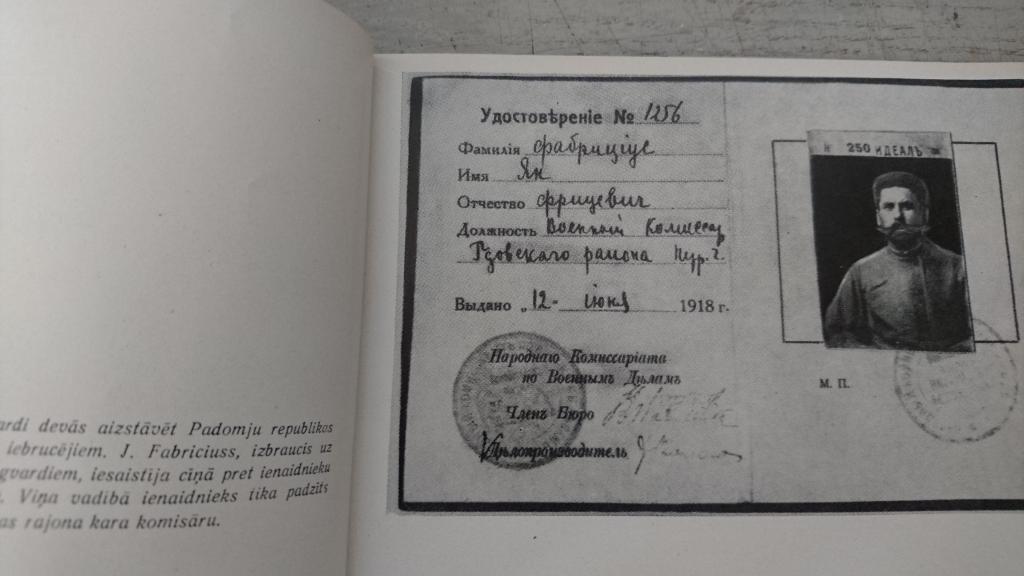 ardi devās aizstāvēt Padomju republikas
iebrucējiem. J. Fabriciuss, izbraucis uz
gvardiem, iesaistīja cīņā pret ienaidnieku
Viņa vadībā ienaidnieks tika padzīts
as rajona kara komisāru.
Удостовѣреніе № 1256
Фамилія Фабриціус
Имя Ян
Отчество Фрицевич
Должность Военный Комиссар
Гдовскаго района
Выдано „12- июня 1918 г.
Народнаго Комиссаріата
по Военнымъ Дѣламъ
Членъ Бюро
Дѣлопроизводитель
250 ИДЕАЛЪ
М. П.